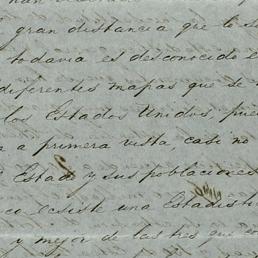 gran distancia que lo s
todavia es desconocido e
diferentes mapas que se
los Estados Unidos, pue
a primera vista, casi no
Estado y sus poblaciones
co ecsiste una Estadist
y mejor de las tres que co